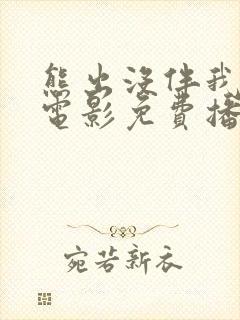 熊出没伴我
電影免費播
宛若新衣